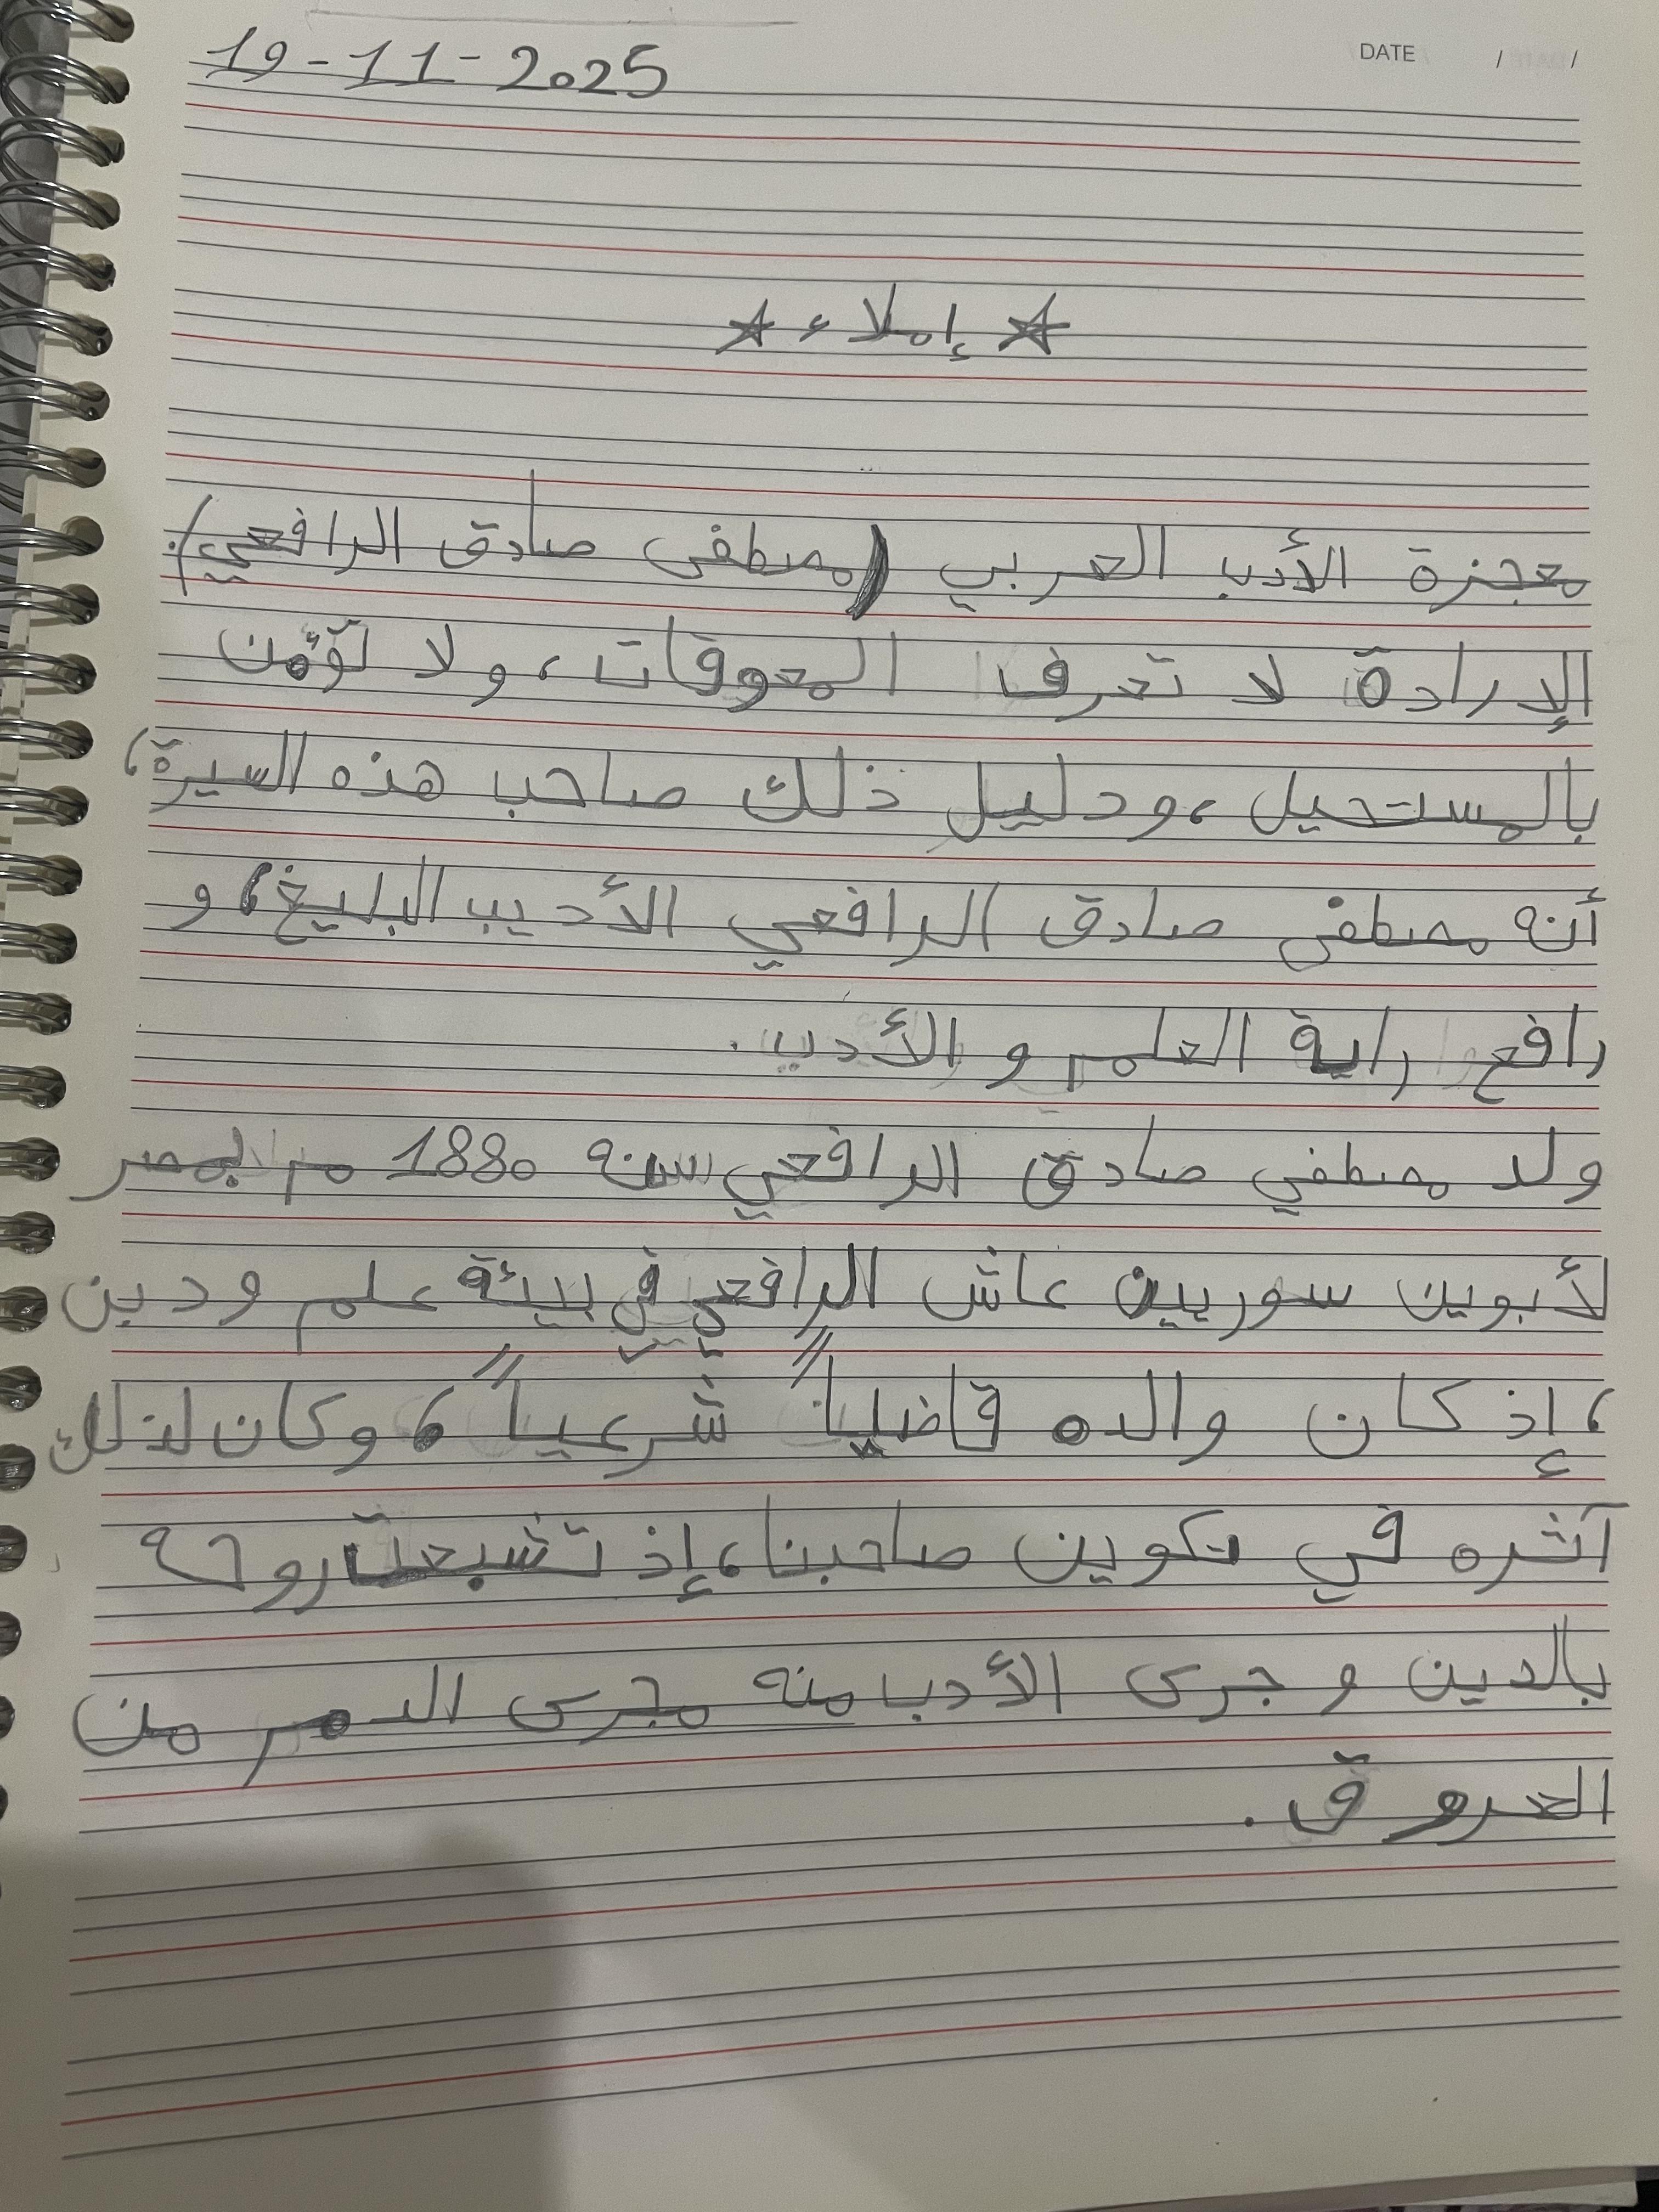 DATE / /
19-11-2025
☆ إملاء ☆
معجزة الأدب العربي (مصطفى صادق الرافعي).
الإرادة لا تعرف المعوقات، ولا تؤمن
بالمستحيل، ودليل ذلك صاحب هذه السيرة،
أنه مصطفى صادق الرافعي الأديب البليغ، و
رافع راية العلم و الأدب.
ولد مصطفي صادق الرافعي سنه 1880 م بمصر
لأبوين سوريين عاش الرافعي في بيئة علم ودين
، إذ كان والده قاضياً شرعياً، وكان لذلك
آثره في تكوين صاحبنا، إذ تشبعت روحه
بالدين و جرى الأدب منه مجرى الدم من
العروق.